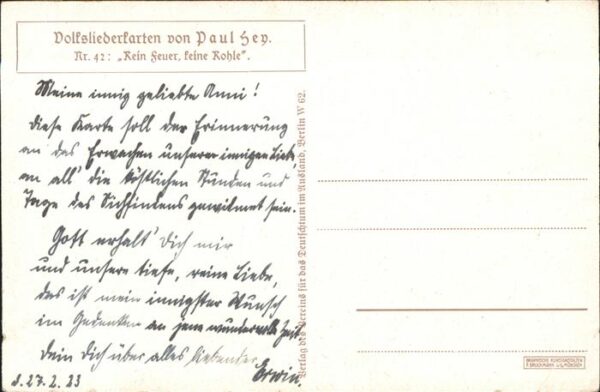 Volksliederkarten von Paul Hey.
Nr. 42: „Kein Feuer, keine Kohle“.
Meine innig geliebte Anni!
Diese Karte soll der Erinnerung
an das Erwachen unserer innigen Liebe
an all' die köstlichen Stunden und
Tage des Sichfindens gewidmet sein.
Gott erhalt' Dich mir
und unsere tiefe, reine Liebe,
das ist mein innigster Wunsch
im Gedenken an jene wundervolle Zeit
Dein Dich über alles liebender
Erwin.
d. 27. 2. 23
Verlag des Vereins für das Deutschtum im Ausland, Berlin W 62.
F. BRUCKMANN A.G. MÜNCHEN